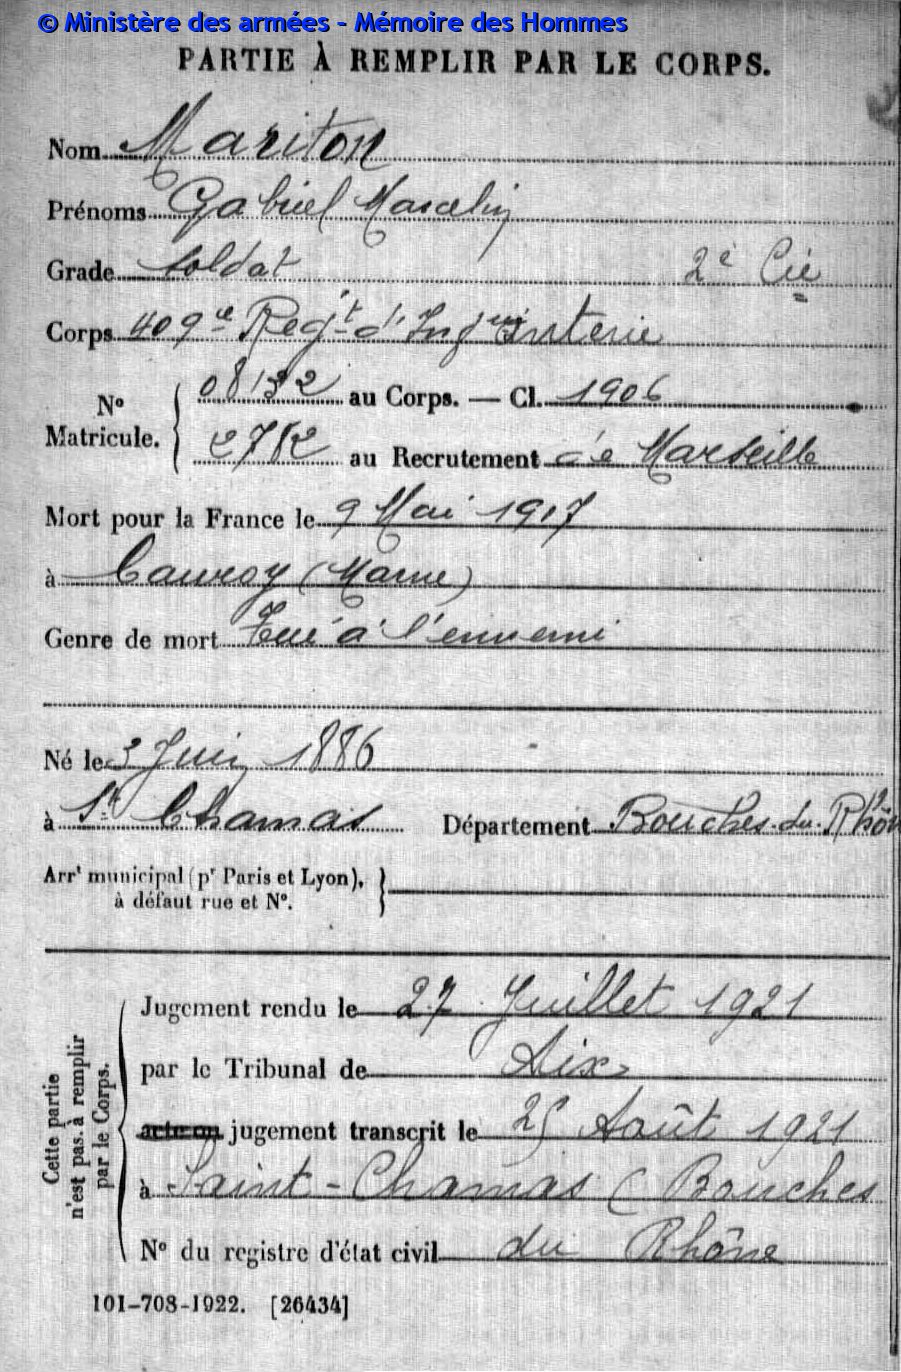 © Ministère des armées - Mémoire des Hommes
PARTIE À REMPLIR PAR LE CORPS.
Nom Mariton
Prénoms Gabriel Marcelin
Grade Soldat 2e Cie
Corps 409e Regt d'Infanterie
No Matricule. { 08132 au Corps. — Cl. 1906
2782 au Recrutement de Marseille
Mort pour la France le 9 Mai 1917
à Cauroy (Marne)
Genre de mort Tué à l'ennemi
Né le 3 Juin 1886
à St Chamas Département Bouches-du-Rhône
Arrt municipal (pr Paris et Lyon), }
à défaut rue et No.
Cette partie n'est pas à remplir par le Corps.
Jugement rendu le 27 Juillet 1921
par le Tribunal de Aix
acte ou jugement transcrit le 25 Août 1921
à Saint-Chamas (Bouches
No du registre d'état civil du Rhône
101-708-1922. [26434]